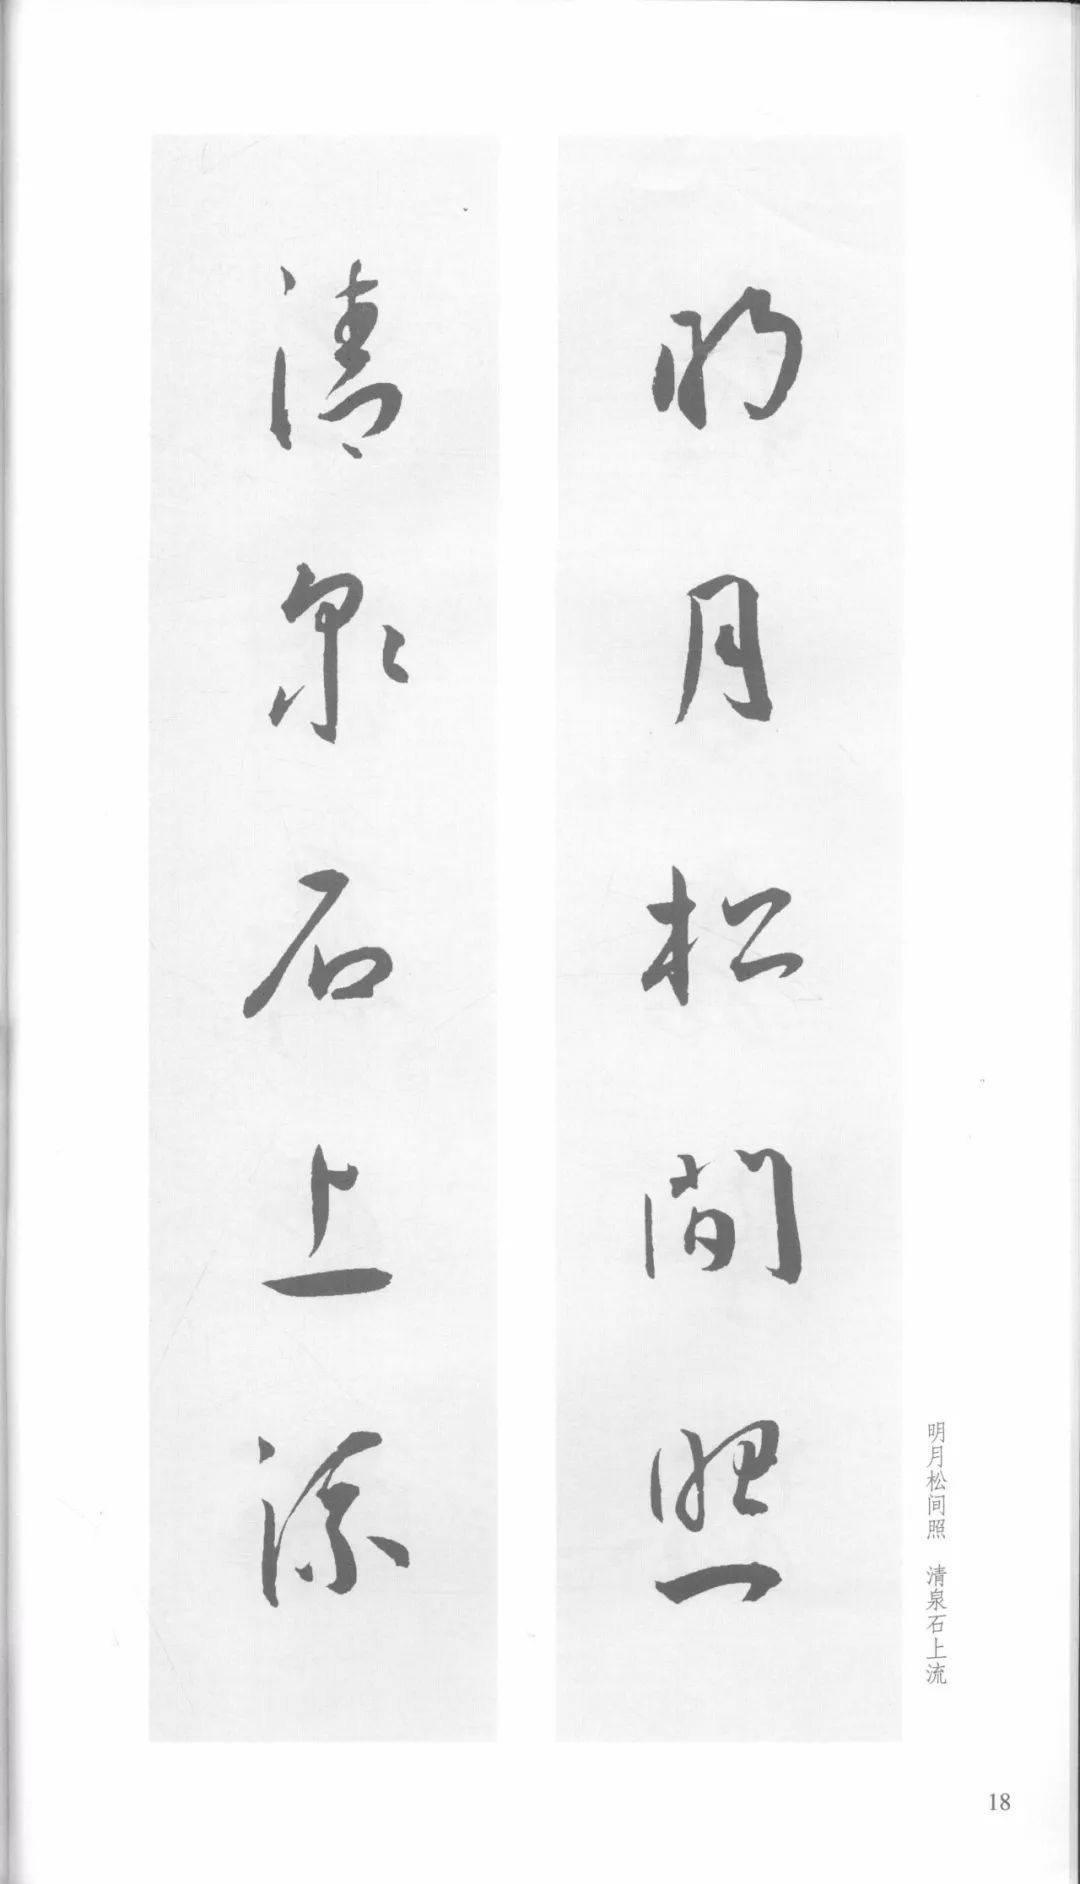 明月松間照
清泉石上流
明月松间照 清泉石上流
18